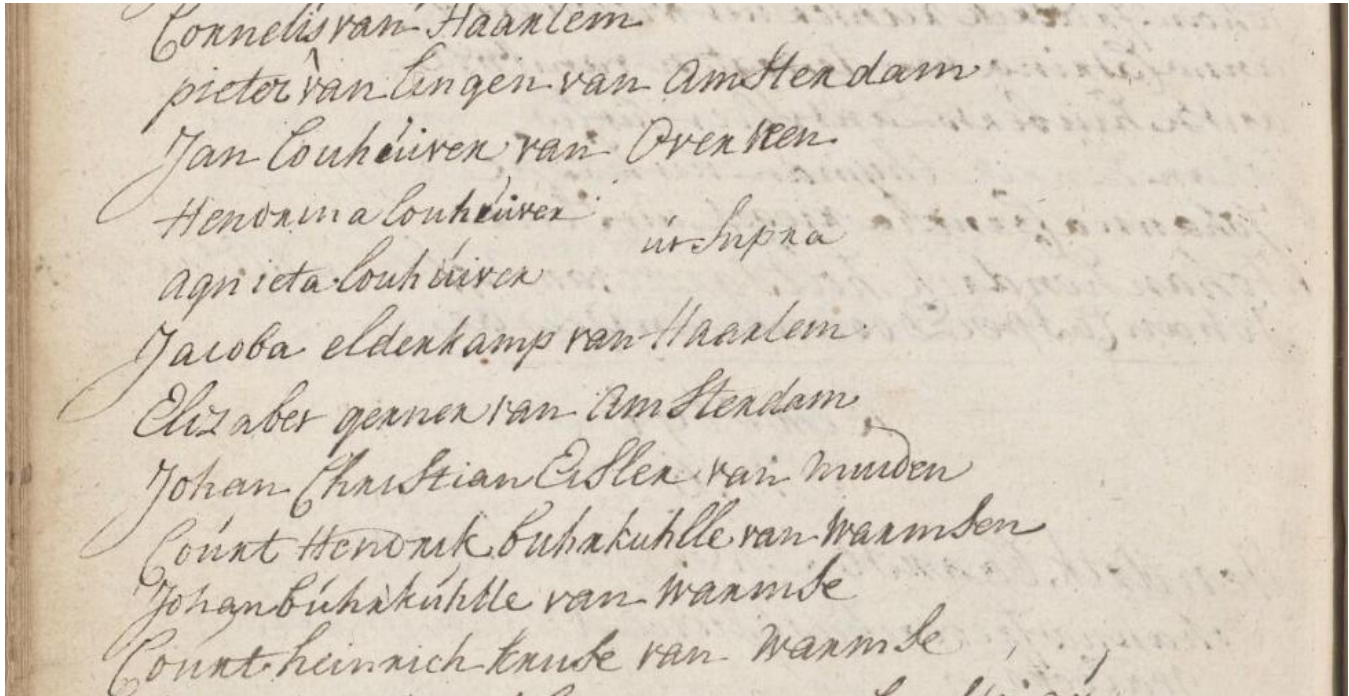 Cornelis van Haarlem
pieter van lingen van Amsterdam
Jan Couhúíver van Overveen
Hendrina Couhúíver
ut Supra
agnieta Couhúíver
Jacoba elderkamp van Haarlem
Elizabet gerner van Amsterdam
Johan Christian Eisler van muiden
Coúrt Hendrik buhrkuhlle van warmsen
Johan búhrkúhlle van warmse
Court heinrich kruse van warmse